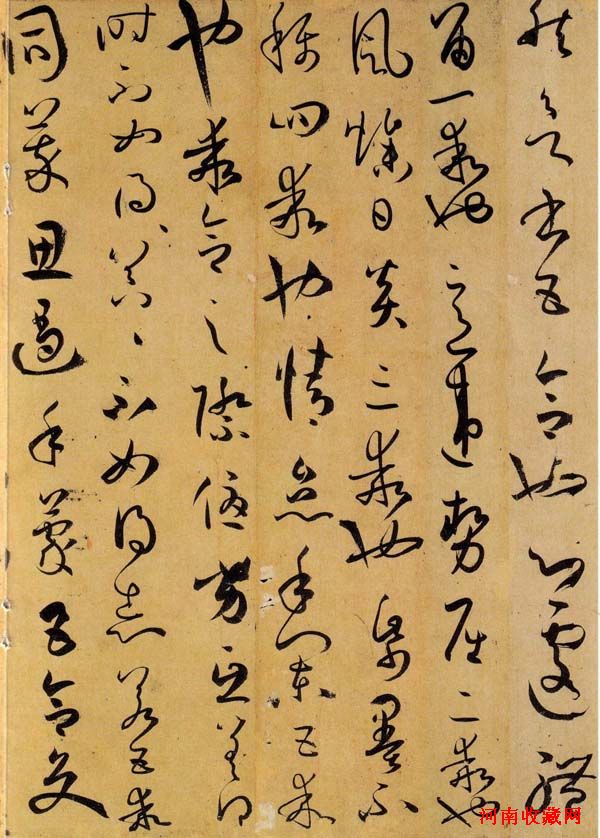 然欲書五合也心遽體
留一乖也意違勢屈二乖也
風燥日炎三乖也紙墨不
稱四乖也情怠手闌五乖
也乖合之際優劣互差得
時不如得〻器〻不如得志若五乖
同萃思遏手蒙五合交
河南收藏网